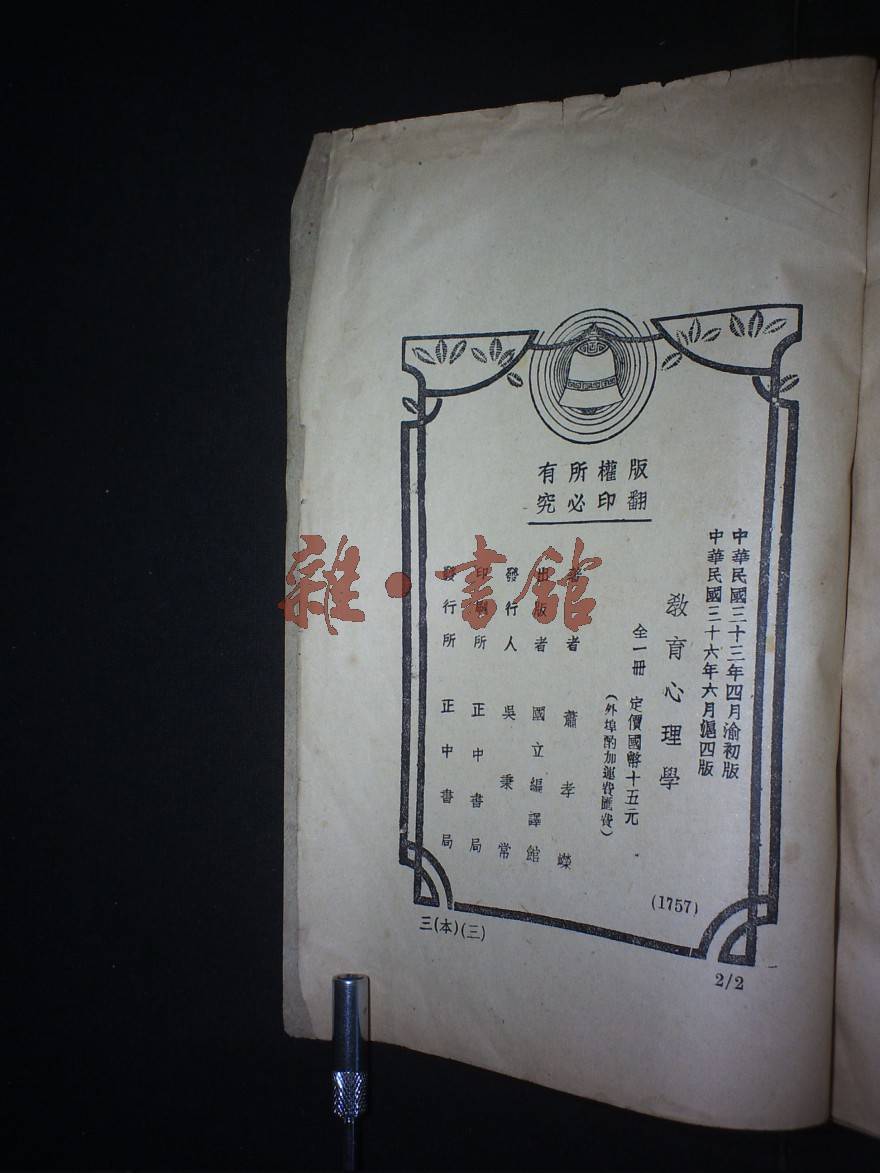 版權所有
翻印必究
中華民國三十三年四月渝初版
中華民國三十六年六月滬四版
教育心理學
全一冊 定價國幣十五元
(外埠酌加運費匯費)
著者 蕭孝嶸
出版者 國立編譯館
發行人 吳秉常
印刷所 正中書局
發行所 正中書局
(1757)
三(本)(三)
2/2
雜·書館